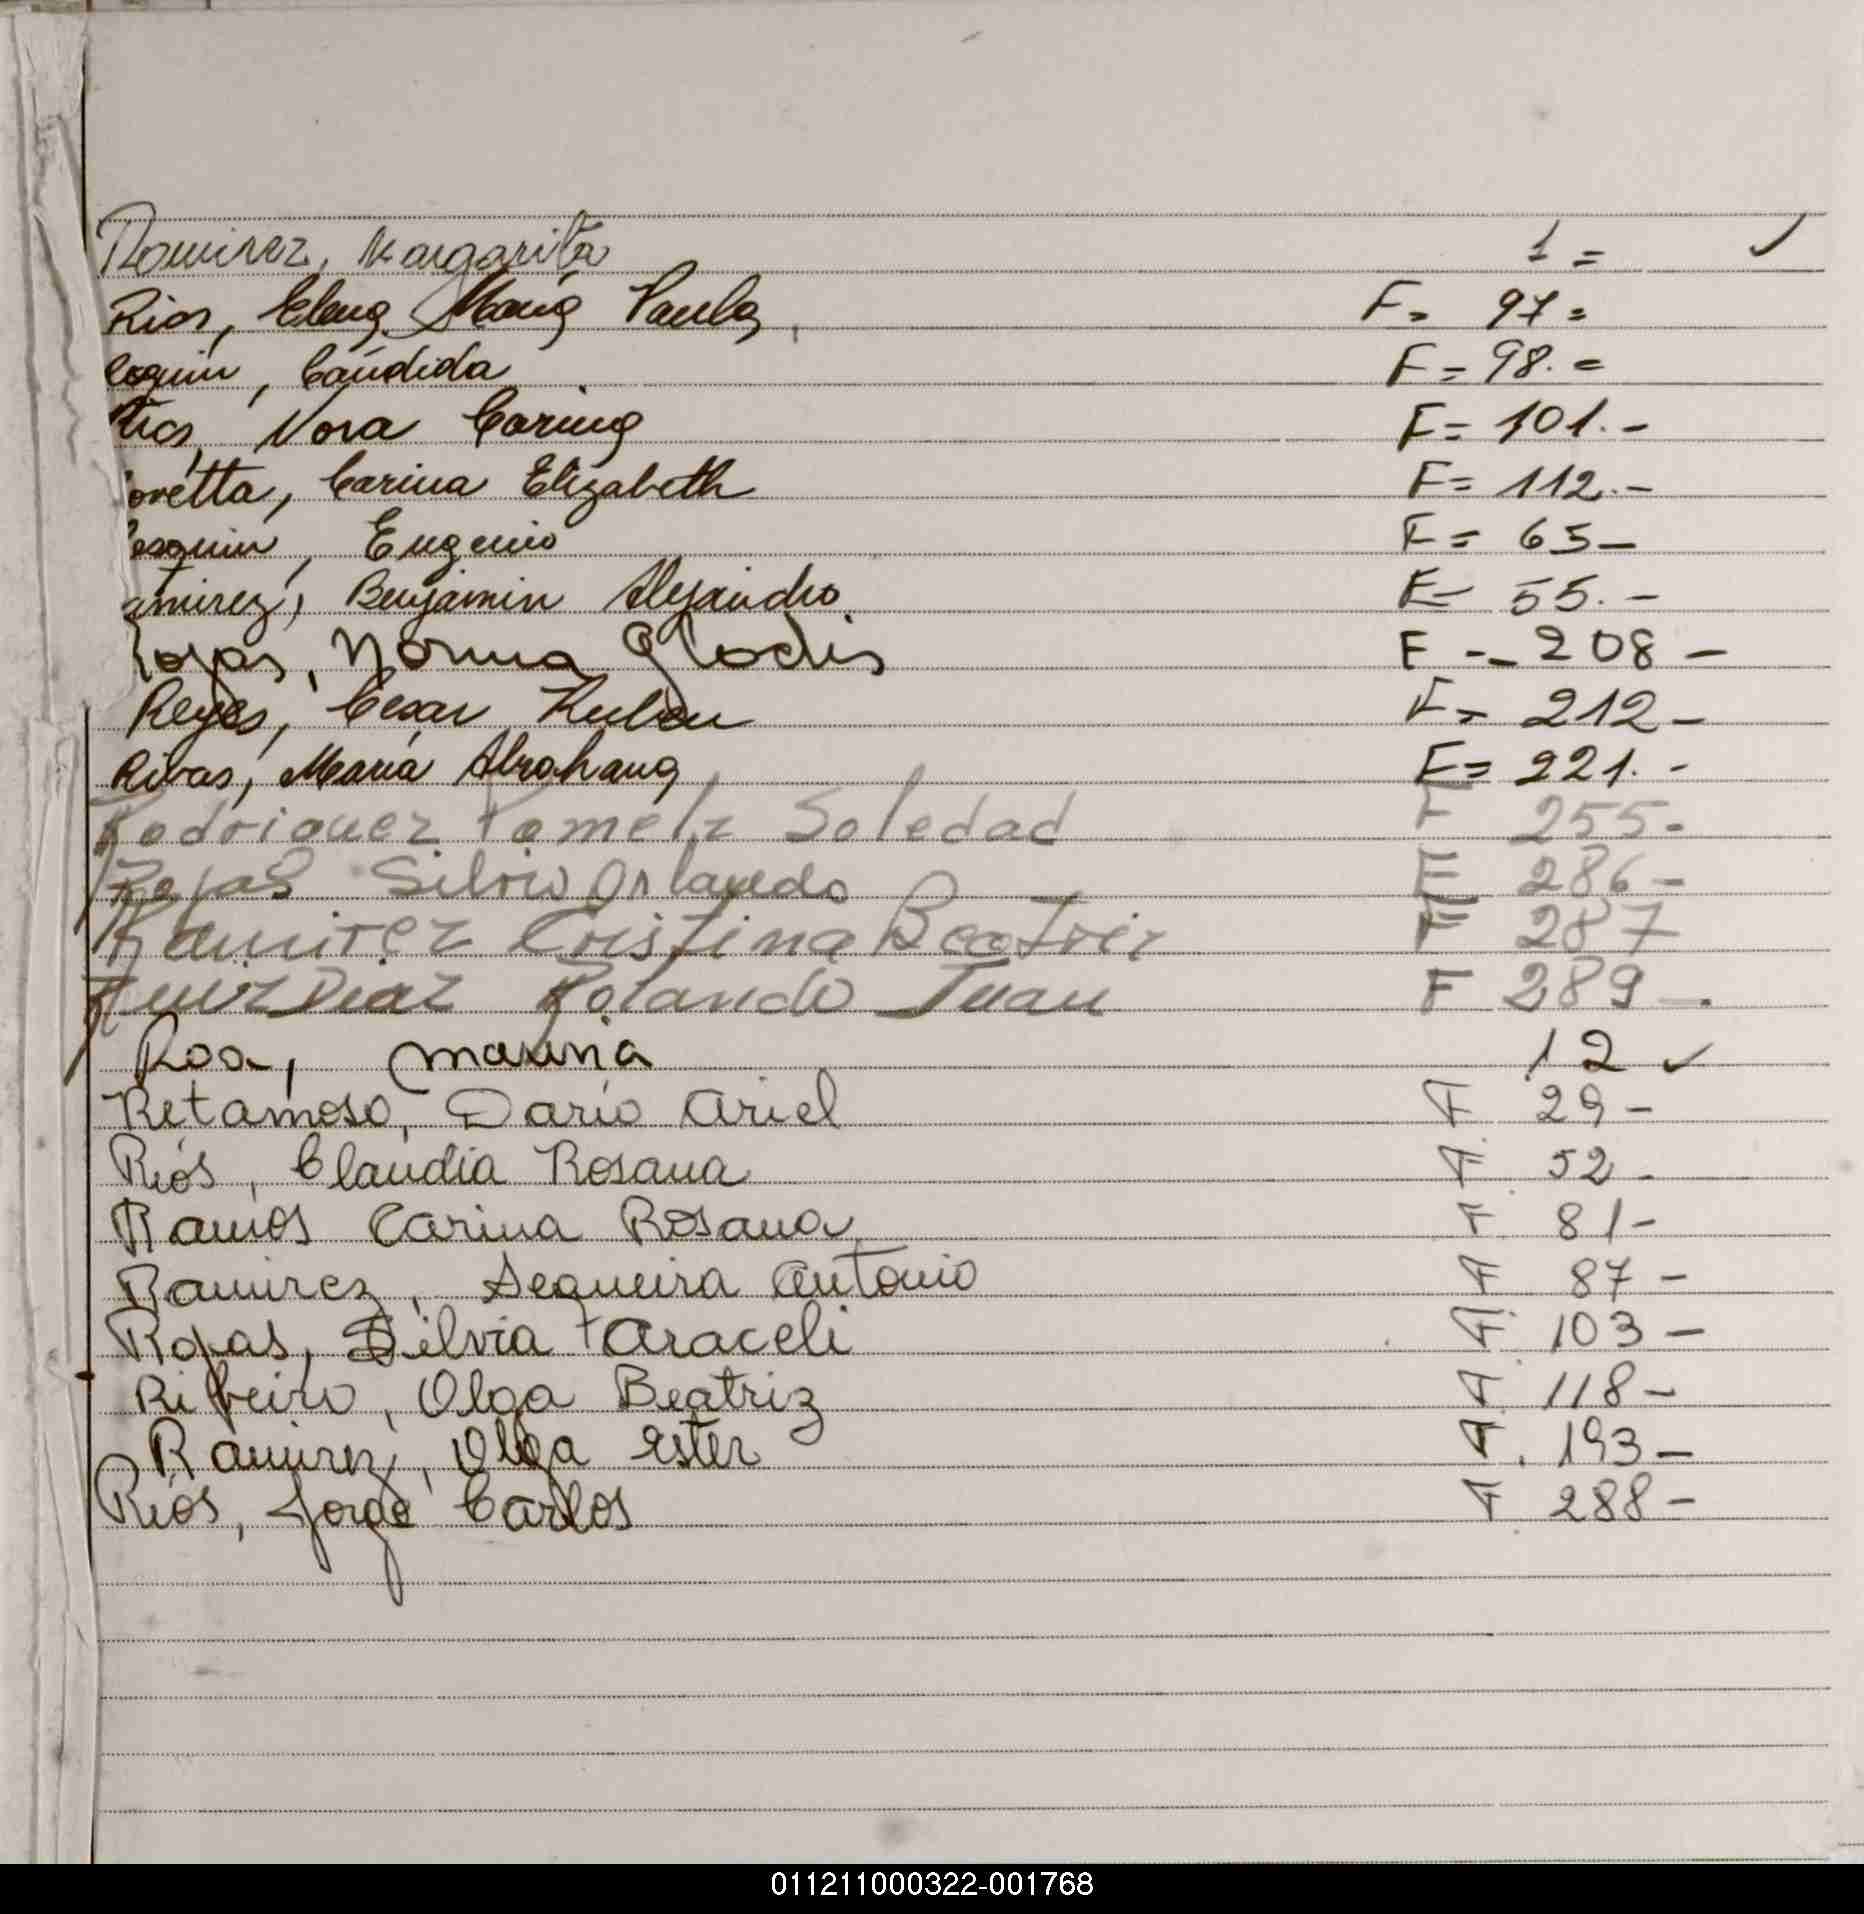 Ramirez, Margarita 1 = ✓
Rios, Elena Maria Paula, F = 97 =
Roquin, Cándida F = 98. =
Rios, Nora Carina F = 101. -
oretta, Carina Elizabeth F = 112. -
esquin, Eugenio F = 65 -
amirez, Benjamin Alejandro F - 55. -
Rojas, Norma Gladis F - - 208 -
Reyes, Cesar Ruben F = 212 -
Rivas, Maria Abrahana F = 221. -
Rodriguez Pamela Soledad F 255 -
Rojas Silvio Orlando F 286 -
Ramirez Cristina Beatriz F 287
Ruiz Diaz Rolando Juan F 289 -
Roa, Marina 12 ✓
Retamoso, Dario Ariel F 29 -
Riós, Claudia Rosana F 52 -
Ramos Carina Rosana F 81 -
Ramirez, Sequeira Antonio F 87 -
Rojas, Silvia Araceli F 103 -
Ribeiro, Olga Beatriz F 118 -
Ramirez, Olga Ester F. 193 -
Riós, Jorge Carlos F 288 -
011211000322-001768